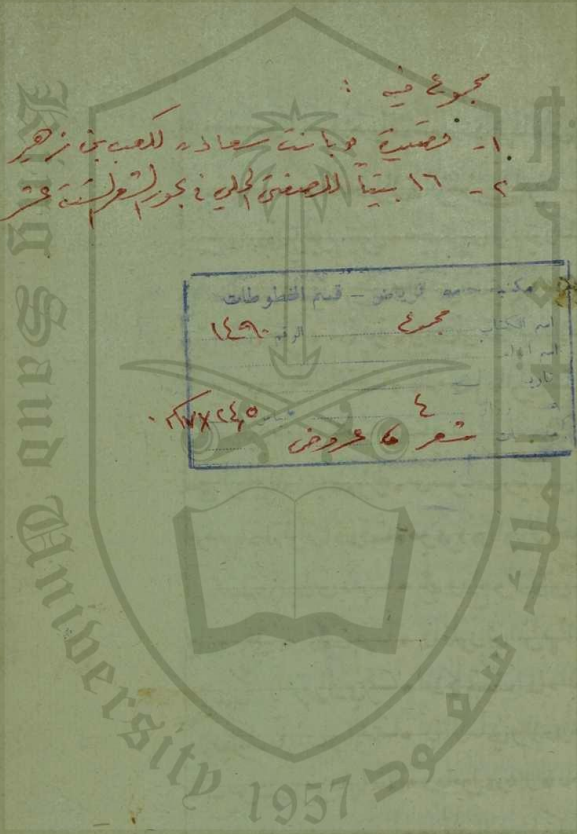 مجموع فيه :
١- قصيدة «بانت سعاد» لكعب بن زهير
٢- ١٦ بيتاً للصفي الحلي في بحور الشعر الستة عشر
مكتبة جامعة الرياض - قسم المخطوطات
اسم الكتاب مجموع الرقم ١٤٩٠
اسم المؤلف
تاريخ
٤
شعر عروض
King Saud University
1957
جامعة الملك سعود